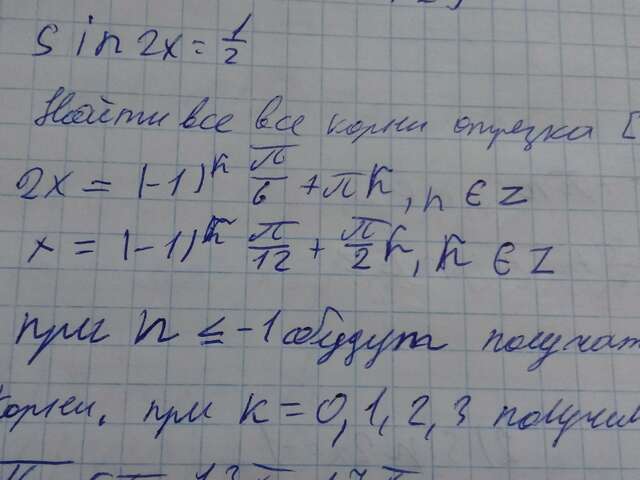 sin 2x = 1/2
Найти все все корни отрезка [
2x = (-1)^k π/6 + πk, n ∈ Z
x = (-1)^k π/12 + π/2 k, k ∈ Z
при n ≤ -1 будут получат
корни. при k = 0, 1, 2, 3 получим